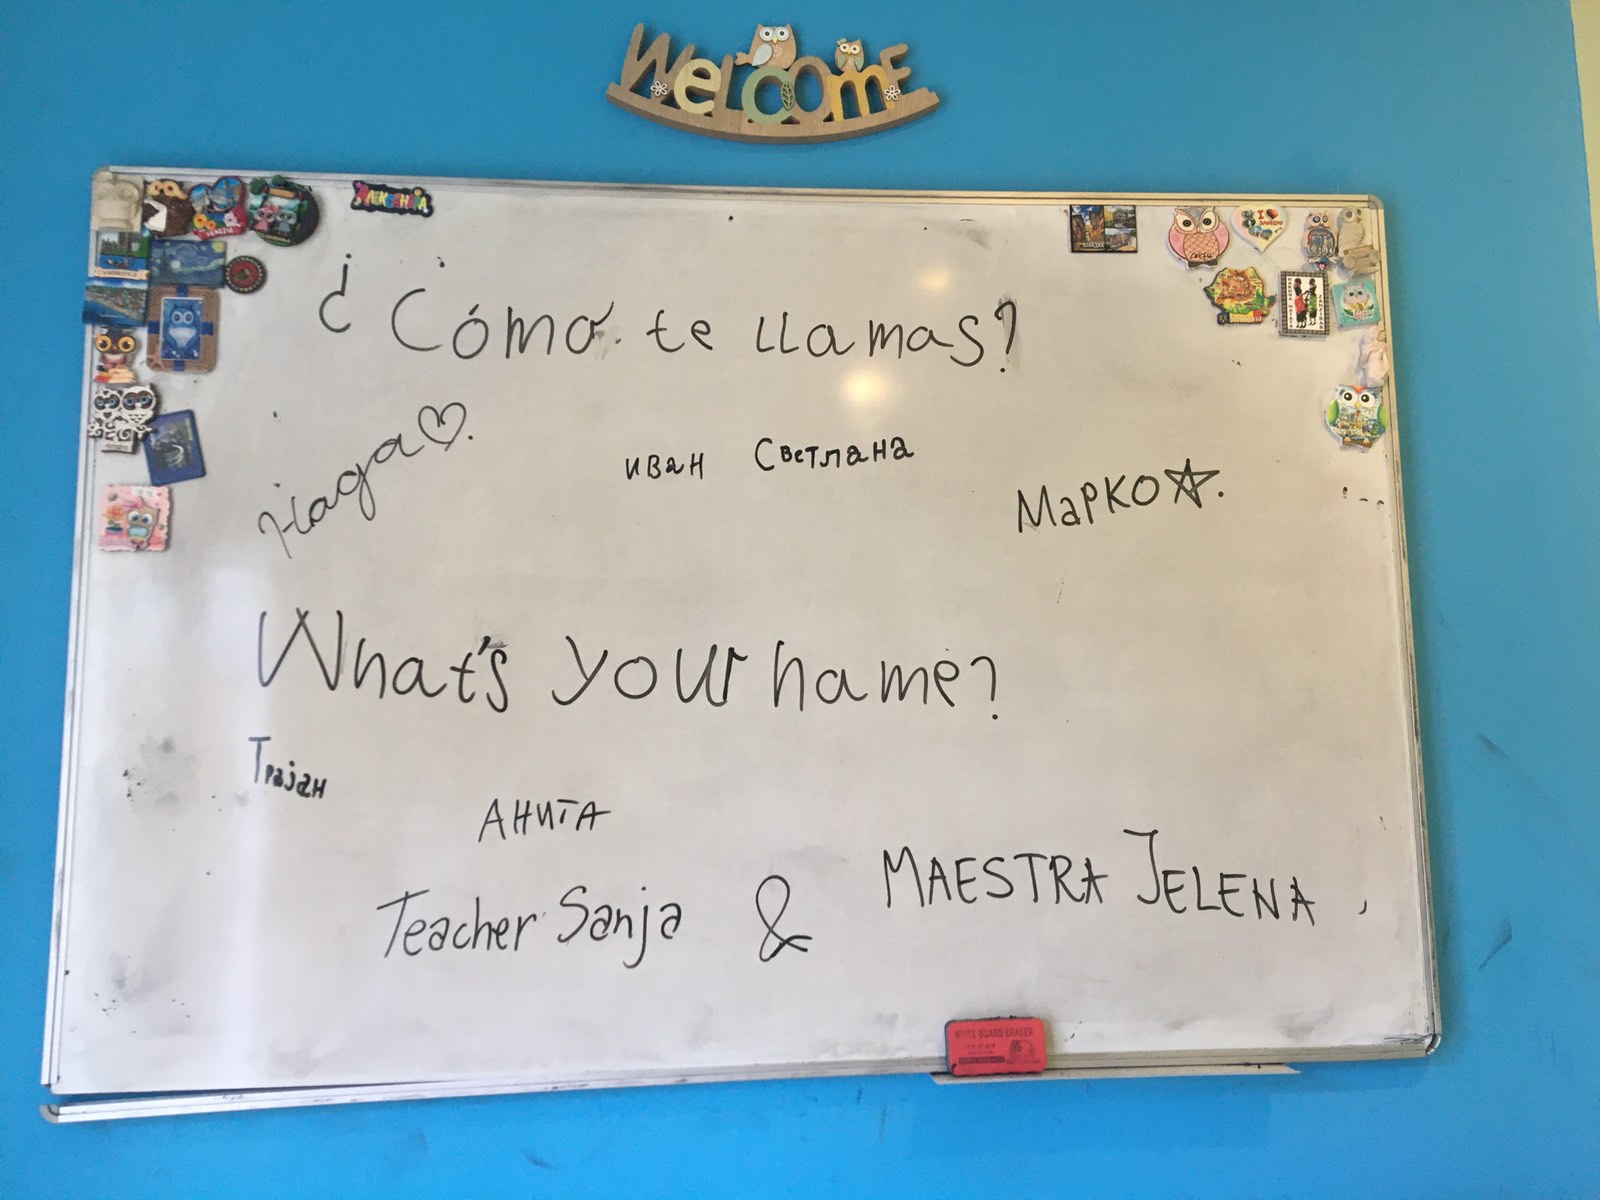 WELCOME
АЛЕКСАНДРИЈА
¿Cómo te llamas?
Нада♡.
иван Светлана
Марко☆.
What's your name?
Трајан
АНИТА
Teacher Sanja & MAESTRA JELENA,
WHITE BOARD ERASER